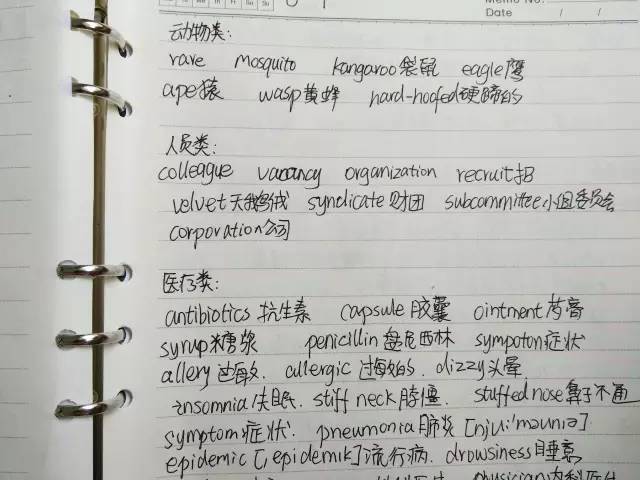 Memo No.
Date / /
动物类:
rare mosquito kangaroo袋鼠 eagle鹰
ape猿 wasp黄蜂 hard-hoofed硬蹄的
人员类:
colleague vacancy organization recruit招
velvet天鹅绒 syndicate财团 subcommittee小组委员会
corporation公司
医疗类:
antibiotics抗生素 capsule胶囊 ointment药膏
syrup糖浆 penicillin盘尼西林 sympoton症状
allery过敏. allergic过敏的. dizzy头晕
insomnia失眠. stiff neck脖僵. stuffed nose鼻子不通
symptom症状. pneumonia肺炎[nju:'məunia]
epidemic[,epidemik]流行病. drowsiness睡意
physician内科医生